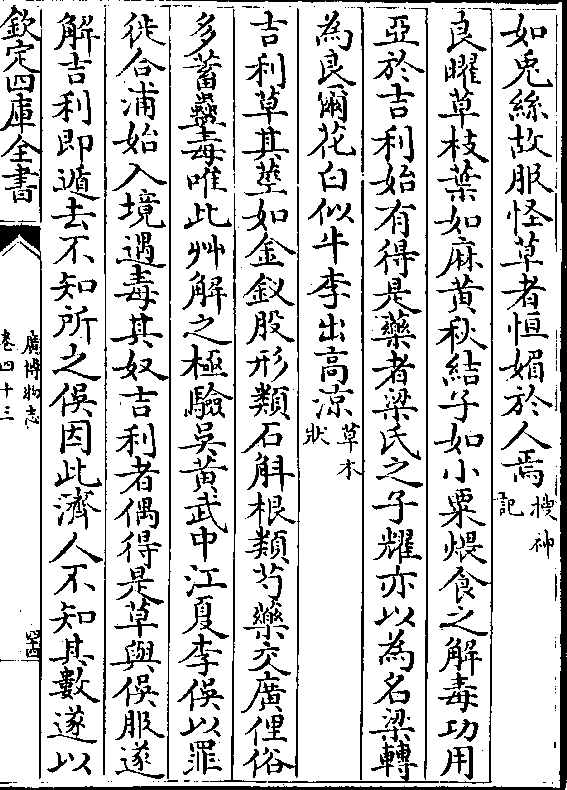 如兎絲故服怪草者恒媚於人焉搜神
記
良耀草枝葉如麻黄秋結子如小粟煨食之解毒功用
亞於吉利始有得是藥者梁氏之子耀亦以為名梁轉
為良爾花白似牛李出高涼草木
狀
吉利草其莖如金釵股形類石斛根類芍藥交廣俚俗
多蓄蠱毒唯此艸解之極驗吳黄武中江夏李俁以罪
徙合浦始入境遇毒其奴吉利者偶得是草與俁服遂
解吉利即遁去不知所之俁因此濟人不知其數遂以
欽定四庫全書
廣博物志
卷四十三
四